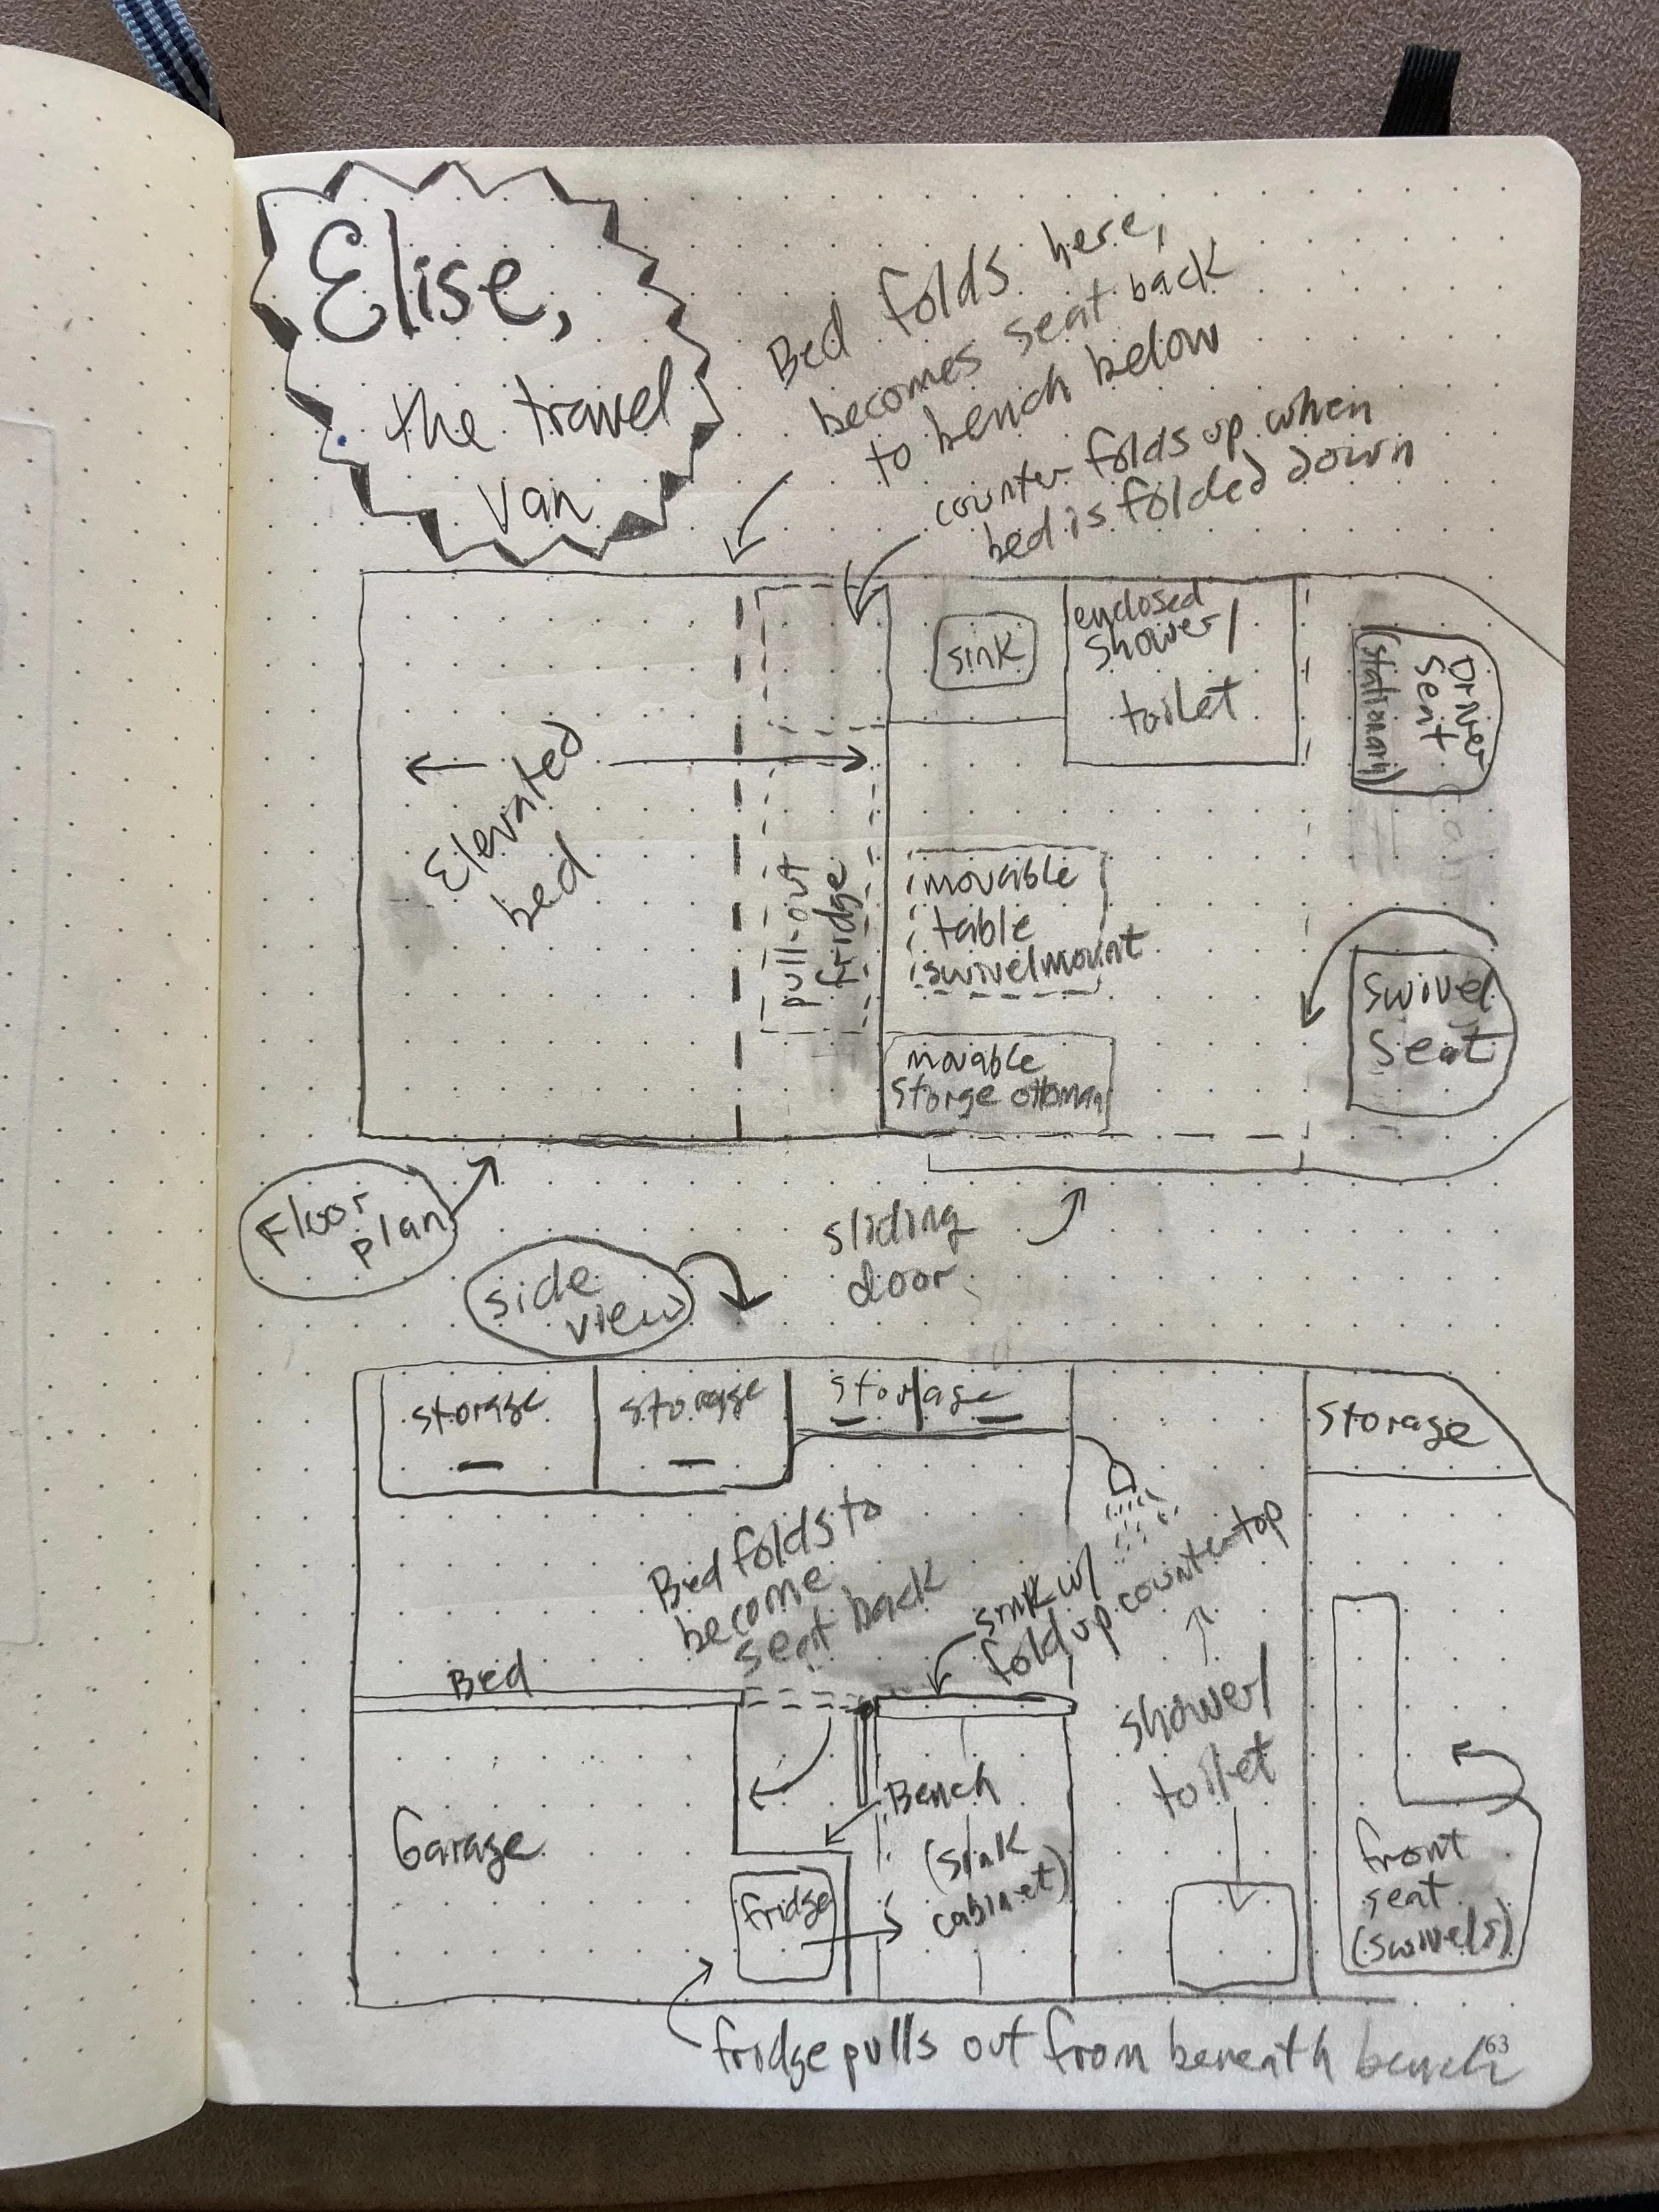 Elise,
the travel
van
Bed folds here,
becomes seat back
to bench below
counter folds up when
bed is folded down
sink
enclosed
shower/
toilet
Driver
Seat
(stationary)
Elevated
bed
pull-out
fridge
movable
table
swivel mount
swivel
seat
movable
storge ottoman
Floor
plan
sliding
door
side
view
storage
storage
storage
storage
Bed folds to
become
seat back
sink w/
fold up countertop
Bed
shower/
toilet
Garage
Bench
(sink
cabinet)
fridge
front
seat
(swivels)
fridge pulls out from beneath bench
63